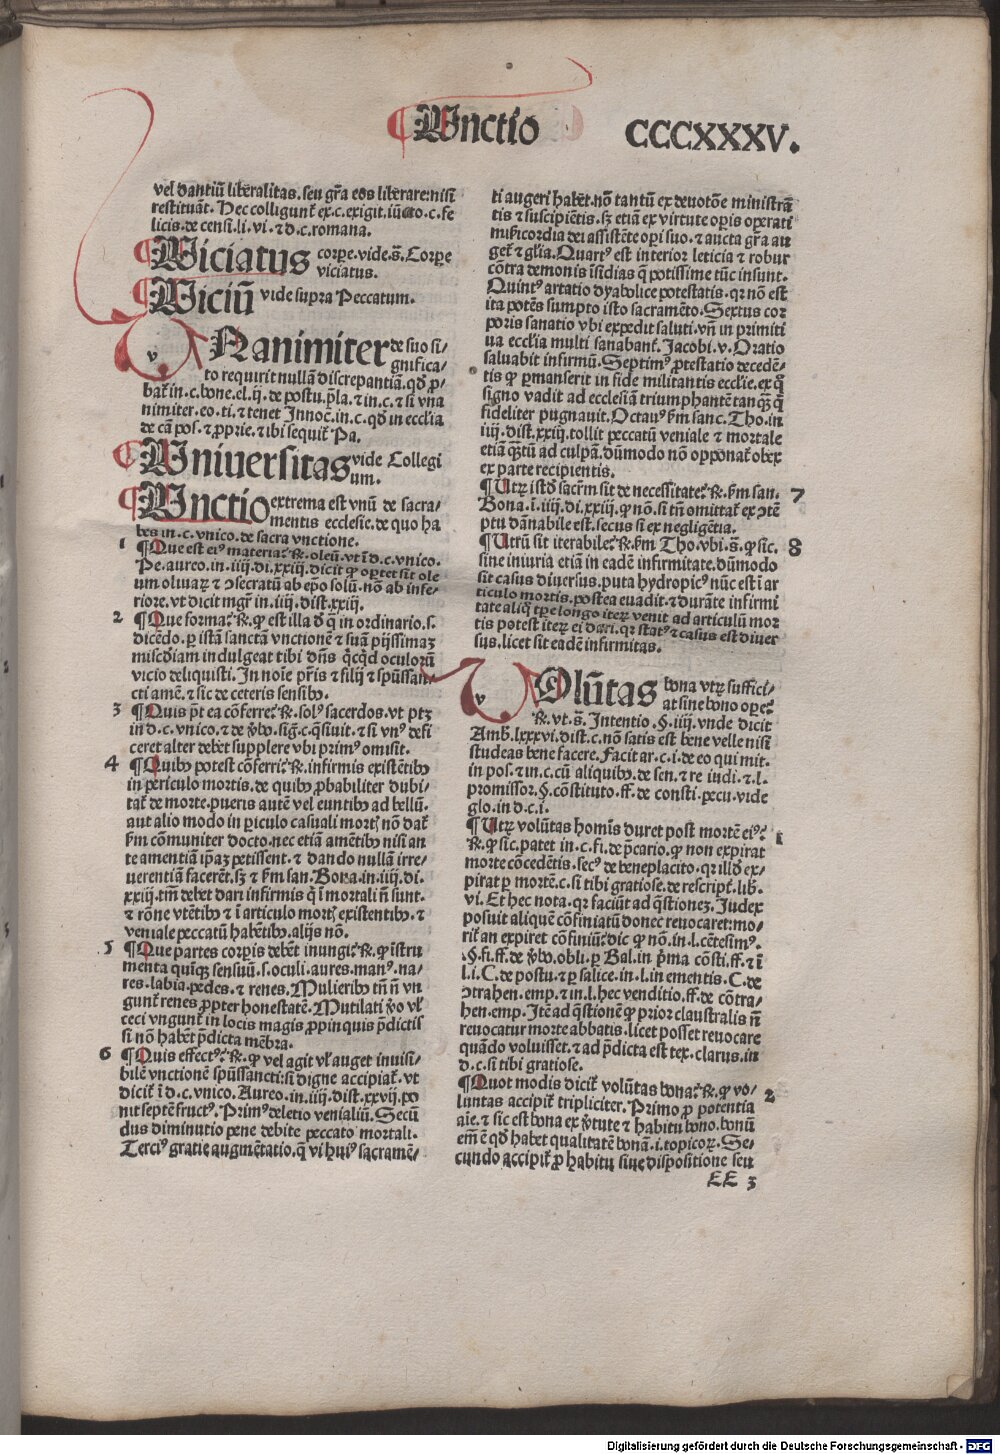 Unctio CCCXXXV.
vel dantiū liberalitas. seu gr̄a eos liberare: nisi
restituāt. Hec colligunt̄ ex. c. exigit. iūcto. c. fe
licis. de censi. li. vi. ⁊ d. c. romana.
Viciatus corpe. vide. s̄. Corpe
viciatus.
Viciū vide supra Peccatum.
v
Nanimiter de suo si-
gnifica-
to requirit nullā discrepantiā. qd̄ p̱-
bat̄ in. c. bone. el. ij. de postu. p̄la. ⁊ in. c. ⁊ si vna
nimiter. eo. ti. ⁊ tenet Innoc̄. in. c. qd̄ in ecclīa
de cā pos. ⁊ p̱prie. ⁊ ibi sequit̄ Pa.
Universitas vide Collegi
um.
Unctio extrema est vnū de sacra-
mentis ecclesie. de quo ha
bes in. c. vnico. de sacra vnctione.
1 ¶ Que est ei⁹ materia? ꝶ. oleū. vt ī d. c. vnico.
Pe. aureo. in. iiij. di. xxiij. dicit ꝙ oꝑtet sit ole
um oliuaꝝ ⁊ ↄsecratū ab ep̄o solū. nō ab infe-
riore. vt dicit mgr̄ in. iiij. dist. xxiij.
2 ¶ Que forma? ꝶ. ꝙ est illa d̄ q̄ in ordinario. s.
dicēdo. ꝑ istā sanctā vnctionē ⁊ suā pijssimaꝫ
miscd̄iam indulgeat tibi dn̄s q̄cqd̄ oculorū
vicio deliquisti. In noīe pr̄is ⁊ filij ⁊ spūssan-
cti amē. ⁊ sic de ceteris sensibꝰ.
3 ¶ Quis pt̄ ea cōferre? ꝶ. sol⁹ sacerdos. vt ptꝫ
in d. c. vnico. ⁊ de v̄bo. sig. c. q̄siuit. ⁊ si vn⁹ defi
ceret alter debet supplere vbi prim⁹ omisit.
4 ¶ Quibꝰ potest cōferri? ꝶ. infirmis existētibꝰ
in periculo mortis. de quibꝰ p̱babiliter dubi-
tat̄ de morte. pueris autē vel euntibꝰ ad bellū.
aut alio modo in ꝑiculo casuali mort̄ nō dat̄
ẜm cōmuniter docto. nec etiā amētibꝰ nisi an
te amentiā ip̄aꝫ petissent. ⁊ dando nullā irre-
uerentiā facerēt. sꝫ ⁊ ẜm san. Bona. in. iiij. di.
xxiij. tm̄ debet dari infirmis q̄ ī mortali n̄ sunt.
⁊ rōne vtētibꝰ ⁊ ī articulo mort̄ existentibꝰ. ⁊
veniale peccatū habētibꝰ. alijs nō.
5 ¶ Que partes corpis debēt inungi? ꝶ. ꝙ īstru
menta quīqꝫ sensuū. s. oculi. aures. man⁹. na-
res. labia. pedes. ⁊ renes. Mulieribꝰ tn̄ n̄ vn
gunt̄ renes p̱pter honestatē. Mutilati v̄o vl̄
ceci vngunt̄ in locis magis p̱pinquis p̄dictis
si nō habēt p̄dicta mēbra.
6 ¶ Quis effect⁹? ꝶ. ꝙ vel agit vl̄ auget inuisi-
bilē vnctionē spūssancti: si digne accipiat̄. vt
dicit̄ ī d. c. vnico. Aureo. in. iiij. dist. xxvij. po
nit septē fruct⁹. Prim⁹ deletio venialiū. Secū
dus diminutio pene debite peccato mortali.
Terci⁹ gratie augmētatio. q̄ vi hui⁹ sacramē-
ti augeri habēt. nō tantū ex deuotōe ministrā
tis ⁊ suscipiētis. sꝫ etiā ex virtute opis operati
misericordia dei assistēte opi suo. ⁊ aucta gr̄a au
get̄ ⁊ glīa. Quart⁹ est interior leticia ⁊ robur
cōtra demonis īsidias q̄ potissime tūc insunt.
Quint⁹ artatio dyabolice potestatis. qr nō est
ita potēs sumpto isto sacramēto. Sextus cor
poris sanatio vbi expedit saluti. vn̄ in primiti
ua ecclīa multi sanabant̄. Jacobi. v. Oratio
saluabit infirmū. Septim⁹ p̱testatio decedē-
tis ꝙ ꝑmanserit in fide militantis ecclīe. ex q̄
signo vadit ad ecclesiā triumphantē tanqꝫ q̄
fideliter pugnauit. Octau⁹ ẜm sanc. Tho. in
iiij. dist. xxiij. tollit peccatū veniale ⁊ mortale
etiā quātū ad culpā. dūmodo nō opponat̄ obex
ex parte recipientis.
¶ Utꝝ istd̄ sacr̄m sit de necessitate? ꝶ. ẜm san. 7
Bona. ī. iiij. di. xxiij. ꝙ nō. si tn̄ omittat̄ ex ↄtē
ptu dānabile est. secus si ex negligētia.
¶ Utrū sit iterabile? ꝶ. ẜm Tho. vbi. s̄. ꝙ sic. 8
sine iniuria etiā in eadē infirmitate. dūmodo
sit casus diuersus. puta hydropic⁹ nūc est ī ar
ticulo mortis. postea euadit. ⁊ durāte infirmi
tate aliq̄ tꝑe longo iteꝝ venit ad articulū mor
tis potest iteꝝ ei dari. qr stat⁹ ⁊ casus est diuer
sus. licet sit eadē infirmitas.
v
Olūtas bona vtꝝ suffici-
at sine bono ope?
ꝶ. vt. s̄. Intentio. §. iiij. vnde dicit
Amb. lxxxvi. dist. c. nō satis est bene velle nisi
studeas bene facere. Facit ar. c. i. de eo qui mit.
in pos. ⁊ in. c. cū aliquibꝰ. de sen. ⁊ re iudi. ⁊. l.
promissor. §. cōstituto. ff. de consti. pecu. vide
glo. in d. c. i.
¶ Utꝝ volūtas homīs duret post mortē ei⁹? 1
ꝶ. ꝙ sic. patet in. c. fi. de p̄cario. ꝙ non expirat
morte cōcedētis. sec⁹ de beneplacito. qr illd̄ ex-
pirat ꝑ mortē. c. si tibi gratiose. de rescript̄. lib.
vi. Et hec nota. qr faciūt ad q̄stioneꝫ. Judex
posuit aliquē cōfiniatū donec reuocaret: mo-
rit̄ an expiret cōfiniū? dic ꝙ nō. in. l. cētesim⁹.
§. fi. ff. de v̄bo. obli. ꝑ Bal. in p̄ma cōsti. ff. ⁊ ī
l. i. C. de postu. ⁊ ꝑ salice. in. l. in ementis. C. de
ↄtrahen. emp. ⁊ in. l. hec venditio. ff. de cōtra-
hen. emp. Itē ad q̄stionē ꝙ prior claustralis n̄
reuocatur morte abbatis. licet posset reuocare
quādo voluisset. ⁊ ad p̄dicta est tex. clarus. in
d. c. si tibi gratiose.
¶ Quot modis dicit̄ volūtas bona? ꝶ. ꝙ vo- 2
luntas accipit̄ tripliciter. Primo p̱ potentia
aīe. ⁊ sic est bona ex v̄tute ⁊ habitu bono. bonū
em̄ ē qd̄ habet qualitatē bonā. i. topicoꝝ. Se-
cundo accipit̄ p̱ habitu siue dispositione seu
EE 3
Digitalisierung gefördert durch die Deutsche Forschungsgemeinschaft - DFG